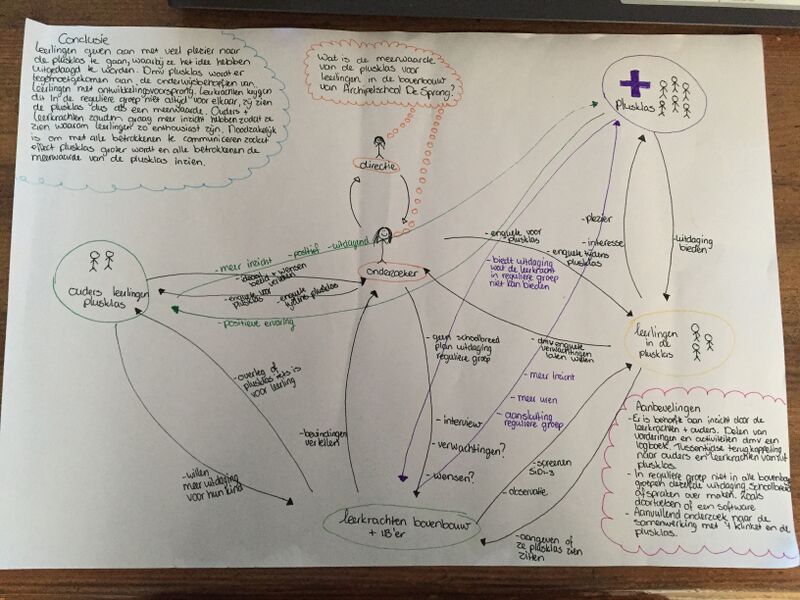 Conclusie
Leerlingen geven aan met veel plezier naar
de plusklas te gaan, waarbij ze het idee hebben
uitgedaagd te worden. Dmv plusklas wordt er
tegemoetgekomen aan de onderwijsbehoeften van
leerlingen met ontwikkelingsvoorsprong. Leerkrachten krijgen
dit in de reguliere groep niet altijd voor elkaar, zij zien
de plusklas dus als een meerwaarde. Ouders +
leerkrachten zouden graag meer inzicht hebben zodat ze
zien waarom leerlingen zo enthousiast zijn. Noodzakelijk
is om met alle betrokkenen te communiceren zodat
effect plusklas groter wordt en alle betrokkenen de
meerwaarde van de plusklas inzien.
Wat is de meerwaarde
van de plusklas voor
leerlingen in de bovenbouw
van Archipelschool De Sprong?
plusklas
directie
onderzoeker
ouders leerlingen
plusklas
- meer inzicht
- positief
- uitdagend
beeld + wensen
vertellen
- enquete voor
plusklas
- enquete
tijdens plusklas
- positieve ervaring
- enquete voor
plusklas
- enquete tijdens
plusklas
- biedt uitdaging
wat de leerkracht
in reguliere groep
niet kan bieden
- plezier
- interesse
- uitdaging
bieden
leerlingen in de
plusklas
- dmv enquete
verwachtingen
laten weten
- geen schoolbreed
plan uitdaging
reguliere groep
- meer inzicht
- meer uren
- aansluiting
reguliere groep
- overleg of
plusklas iets is
voor leerling
- bevindingen
vertellen
- interview
- verwachtingen?
- wensen?
- willen
meer uitdaging
voor hun kind
- screenen
SiDi-3
- observatie
leerkrachten bovenbouw
+ IB'er
- aangeven of
ze plusklas zien
zitten
Aanbevelingen
- Er is behoefte aan inzicht door de
leerkrachten + ouders. Delen van
vorderingen en activiteiten dmv een
logboek. Tussentijdse terugkoppeling
naar ouders en leerkrachten vanuit
plusklas.
- In reguliere groep niet in alle bovenbouw
groepen dezelfde uitdaging. Schoolbreed
afspraken over maken. Zoals
doortoetsen of een software
- Aanvullend onderzoek naar de
samenwerking met 't Klinket en de
plusklas.